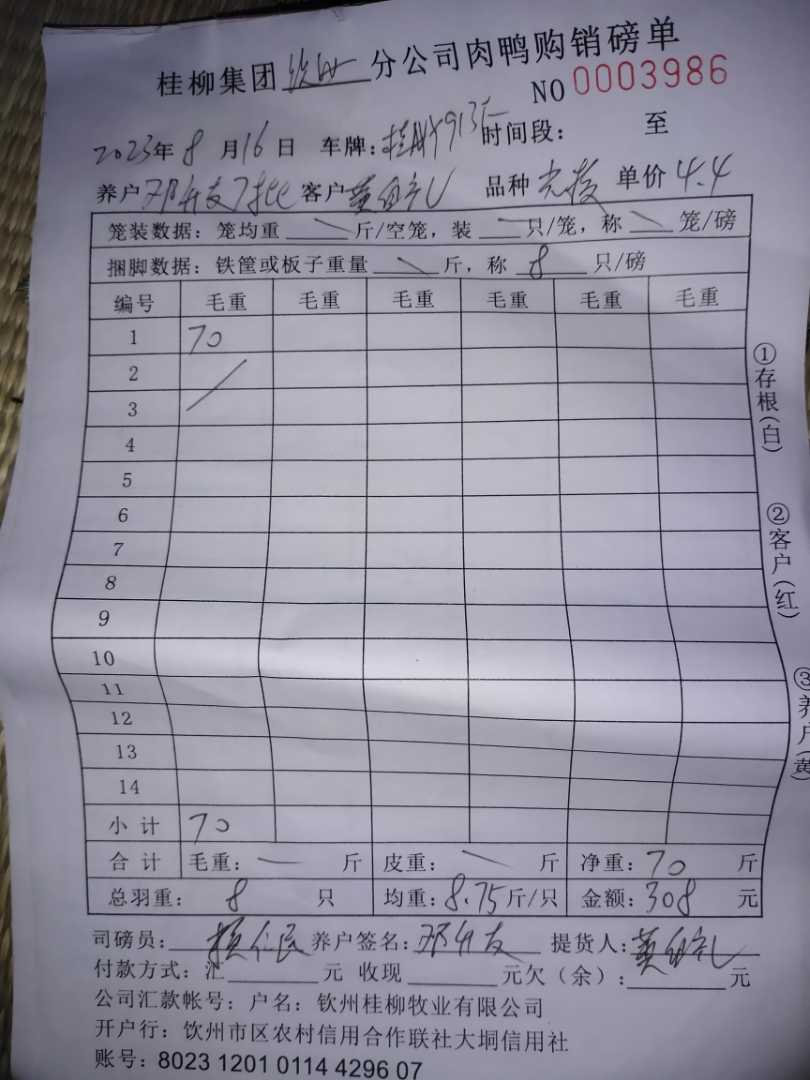 桂柳集团 钦州 分公司肉鸭购销磅单
NO 0003986
2023年 8 月 16 日 车牌: 时间段: 至
养户 邓升友 客户 黄 礼 品种 单价 4.4
笼装数据: 笼均重 斤/空笼, 装 只/笼, 称 笼/磅
捆脚数据: 铁筐或板子重量 斤, 称 8 只/磅
编号 毛重 毛重 毛重 毛重 毛重 毛重
1 70
2
3
4
5
6
7
8
9
10
11
12
13
14
小计 70
合计 毛重: 斤 皮重: 斤 净重: 70 斤
总羽重: 8 只 均重: 8.75 斤/只 金额: 308 元
司磅员: 仁民 养户签名: 邓升友 提货人: 黄 礼
付款方式: 汇 元 收现 元欠(余): 元
公司汇款帐号: 户名: 钦州桂柳牧业有限公司
开户行: 钦州市区农村信用合作联社大垌信用社
账号: 8023 1201 0114 4296 07
①存根(白)
②客户(红)
③养户(黄)